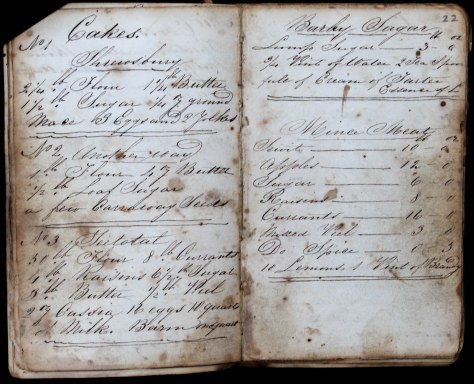 No 1 Cakes.
Shrewsbury
lb Flour lb Butter
lb Sugar ground
Mace 3 Eggs and
No 2 Another way
1 lb Flour Butter
1/2 lb Loaf Sugar
a few Carraway Seeds
No 3 Teetotal
30 lb Flour 8 lb Currants
4 lb Raisons 6 1/2 lb Sugar
8 lb Butter 1/2 lb Peel
Cassia 16 eggs 14 quart
Milk. Barm
22
Barley Sugar
lb oz
Lump Sugar 3 - 0
Pint of Water 2 Tea Spoon
of Cream of Tarter
Essence of L
Mince Meat
lb oz
Suit 10 - 0
Apples 12 - 0
Sugar 6 - 0
Raisens 8 - 0
Currants 16 - 0
Mixed Peel 3
Do Spice 0 3
10 Lemons. 1 Pint of Brandy